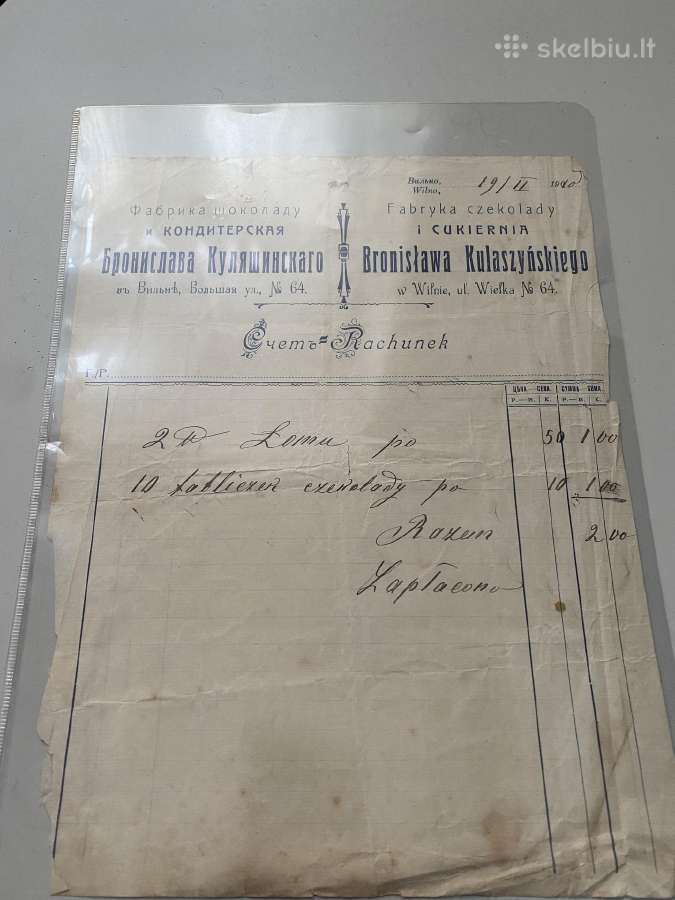 skelbiu.lt
Вильно,
Wilno, 19/II 1910
Фабрика шоколаду
и КОНДИТЕРСКАЯ
Бронислава Куляшинскаго
въ Вильнѣ, Большая ул., № 64.
Fabryka czekolady
i CUKIERNIA
Bronisława Kulaszyńskiego
w Wilnie, ul. Wielka № 64.
Счетъ = Rachunek
Г./P.
ЦѢНА CENA. СУММА SUMA.
Р.—R. К. Р.—R. C.
2 Lomu po 50 1 00
10 tabliczek czekolady po 10 1 00
Razem 2 00
Zapłacono